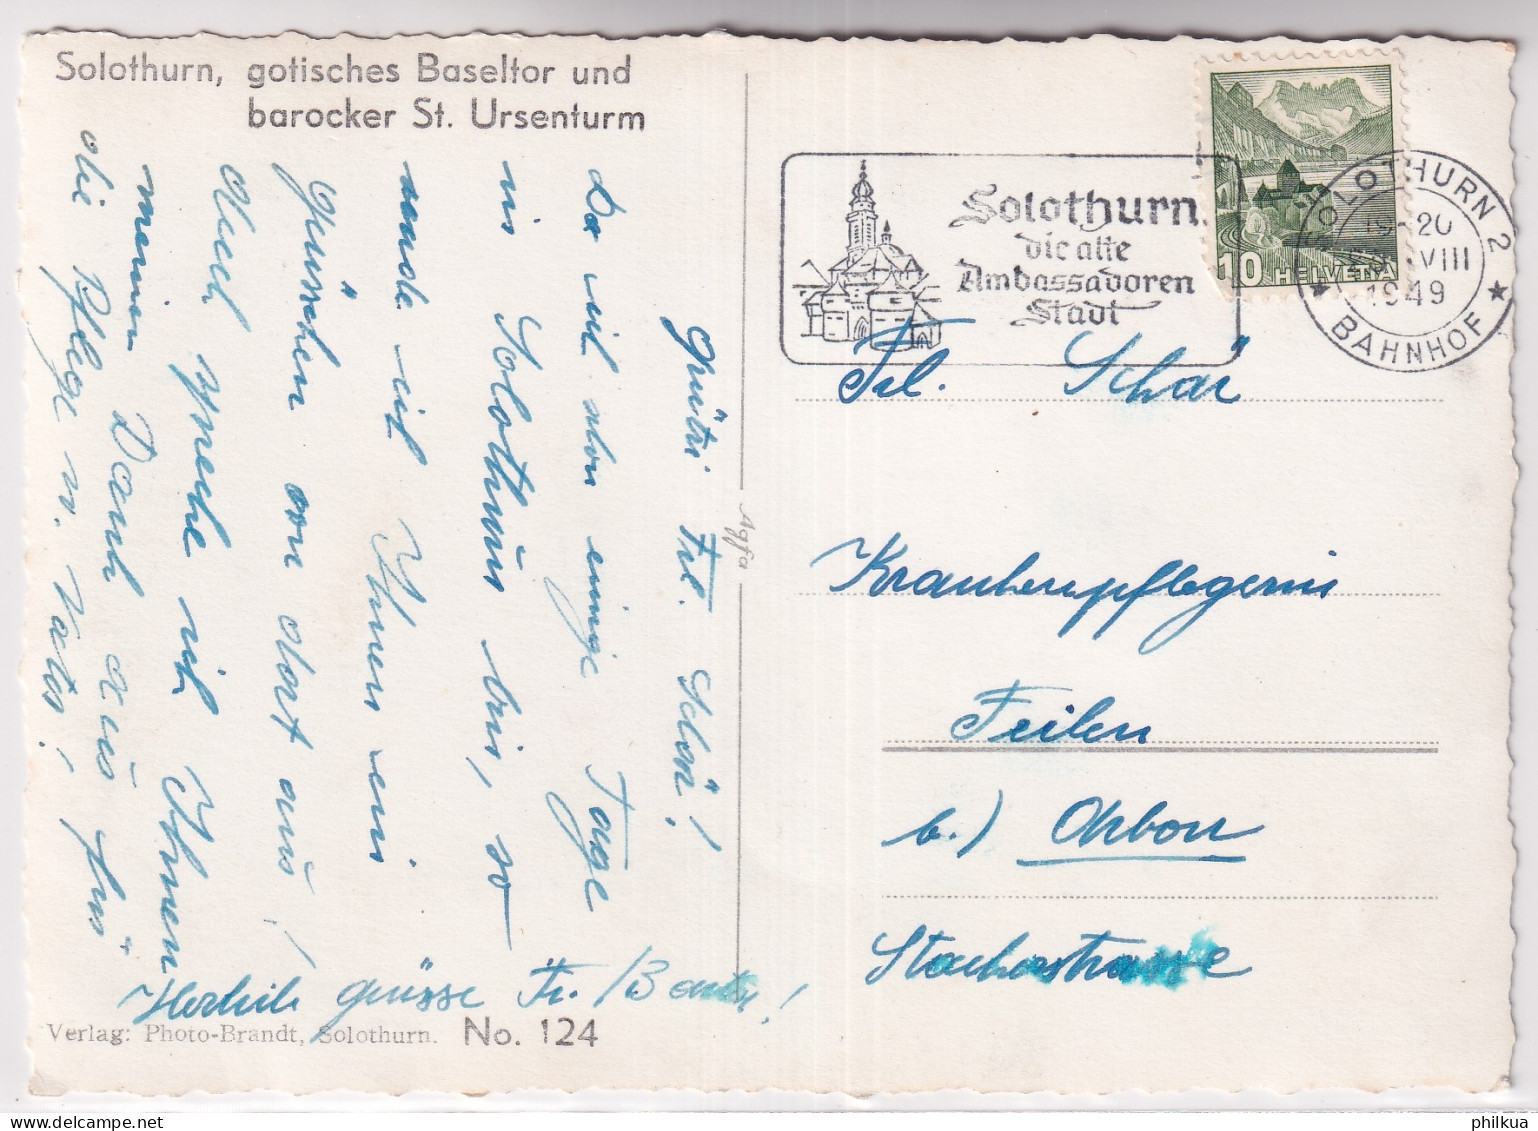 Solothurn, gotisches Baseltor und
barocker St. Ursenturm
Grüezi Frl. Schär!
Da ich schon einige Tage
in Solothurn bin, so
sende ich Ihnen ein
Grüsschen von dort aus!
Auch spreche ich Ihnen
meinen Dank aus für
die Pflege m. Vater!
Herzlich grüsse Fr.
Verlag: Photo-Brandt, Solothurn. No. 124
Agfa
Solothurn
die alte
Ambassadoren
Stadt
10 HELVETIA
SOLOTHURN 2
20
VIII
1949
BAHNHOF
Frl. Schär
Krankenpflegerin
Feilen
b.) Arbon
Stacherstrasse
philkua